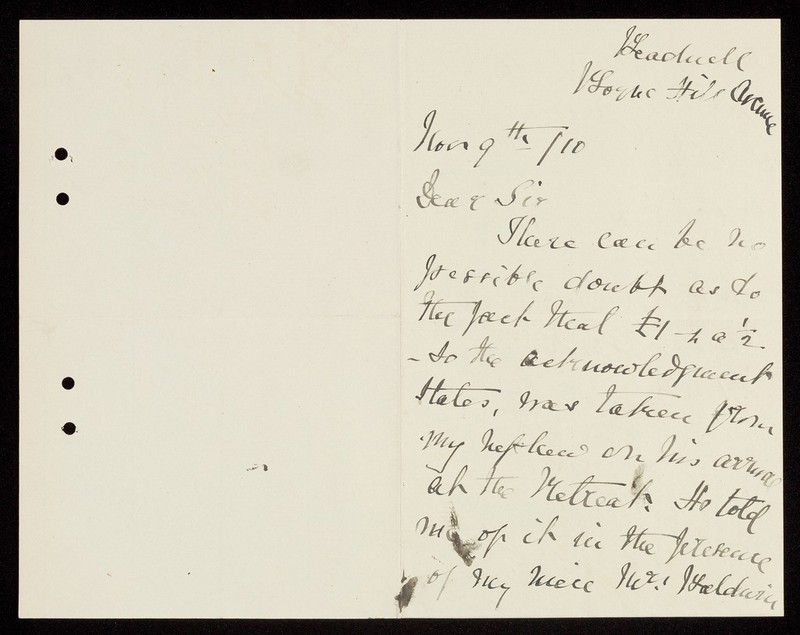 Headwell
Boyne Hill Avenue
Nov 9th /10
Dear Sir
There can be no
possible doubt as to
the fact that £1 - & a ½
- so the acknowledgment
states, was taken from
my nephew on his arrival
at the Retreat. He told
me of it in the presence
of my niece Mrs. Baldwin